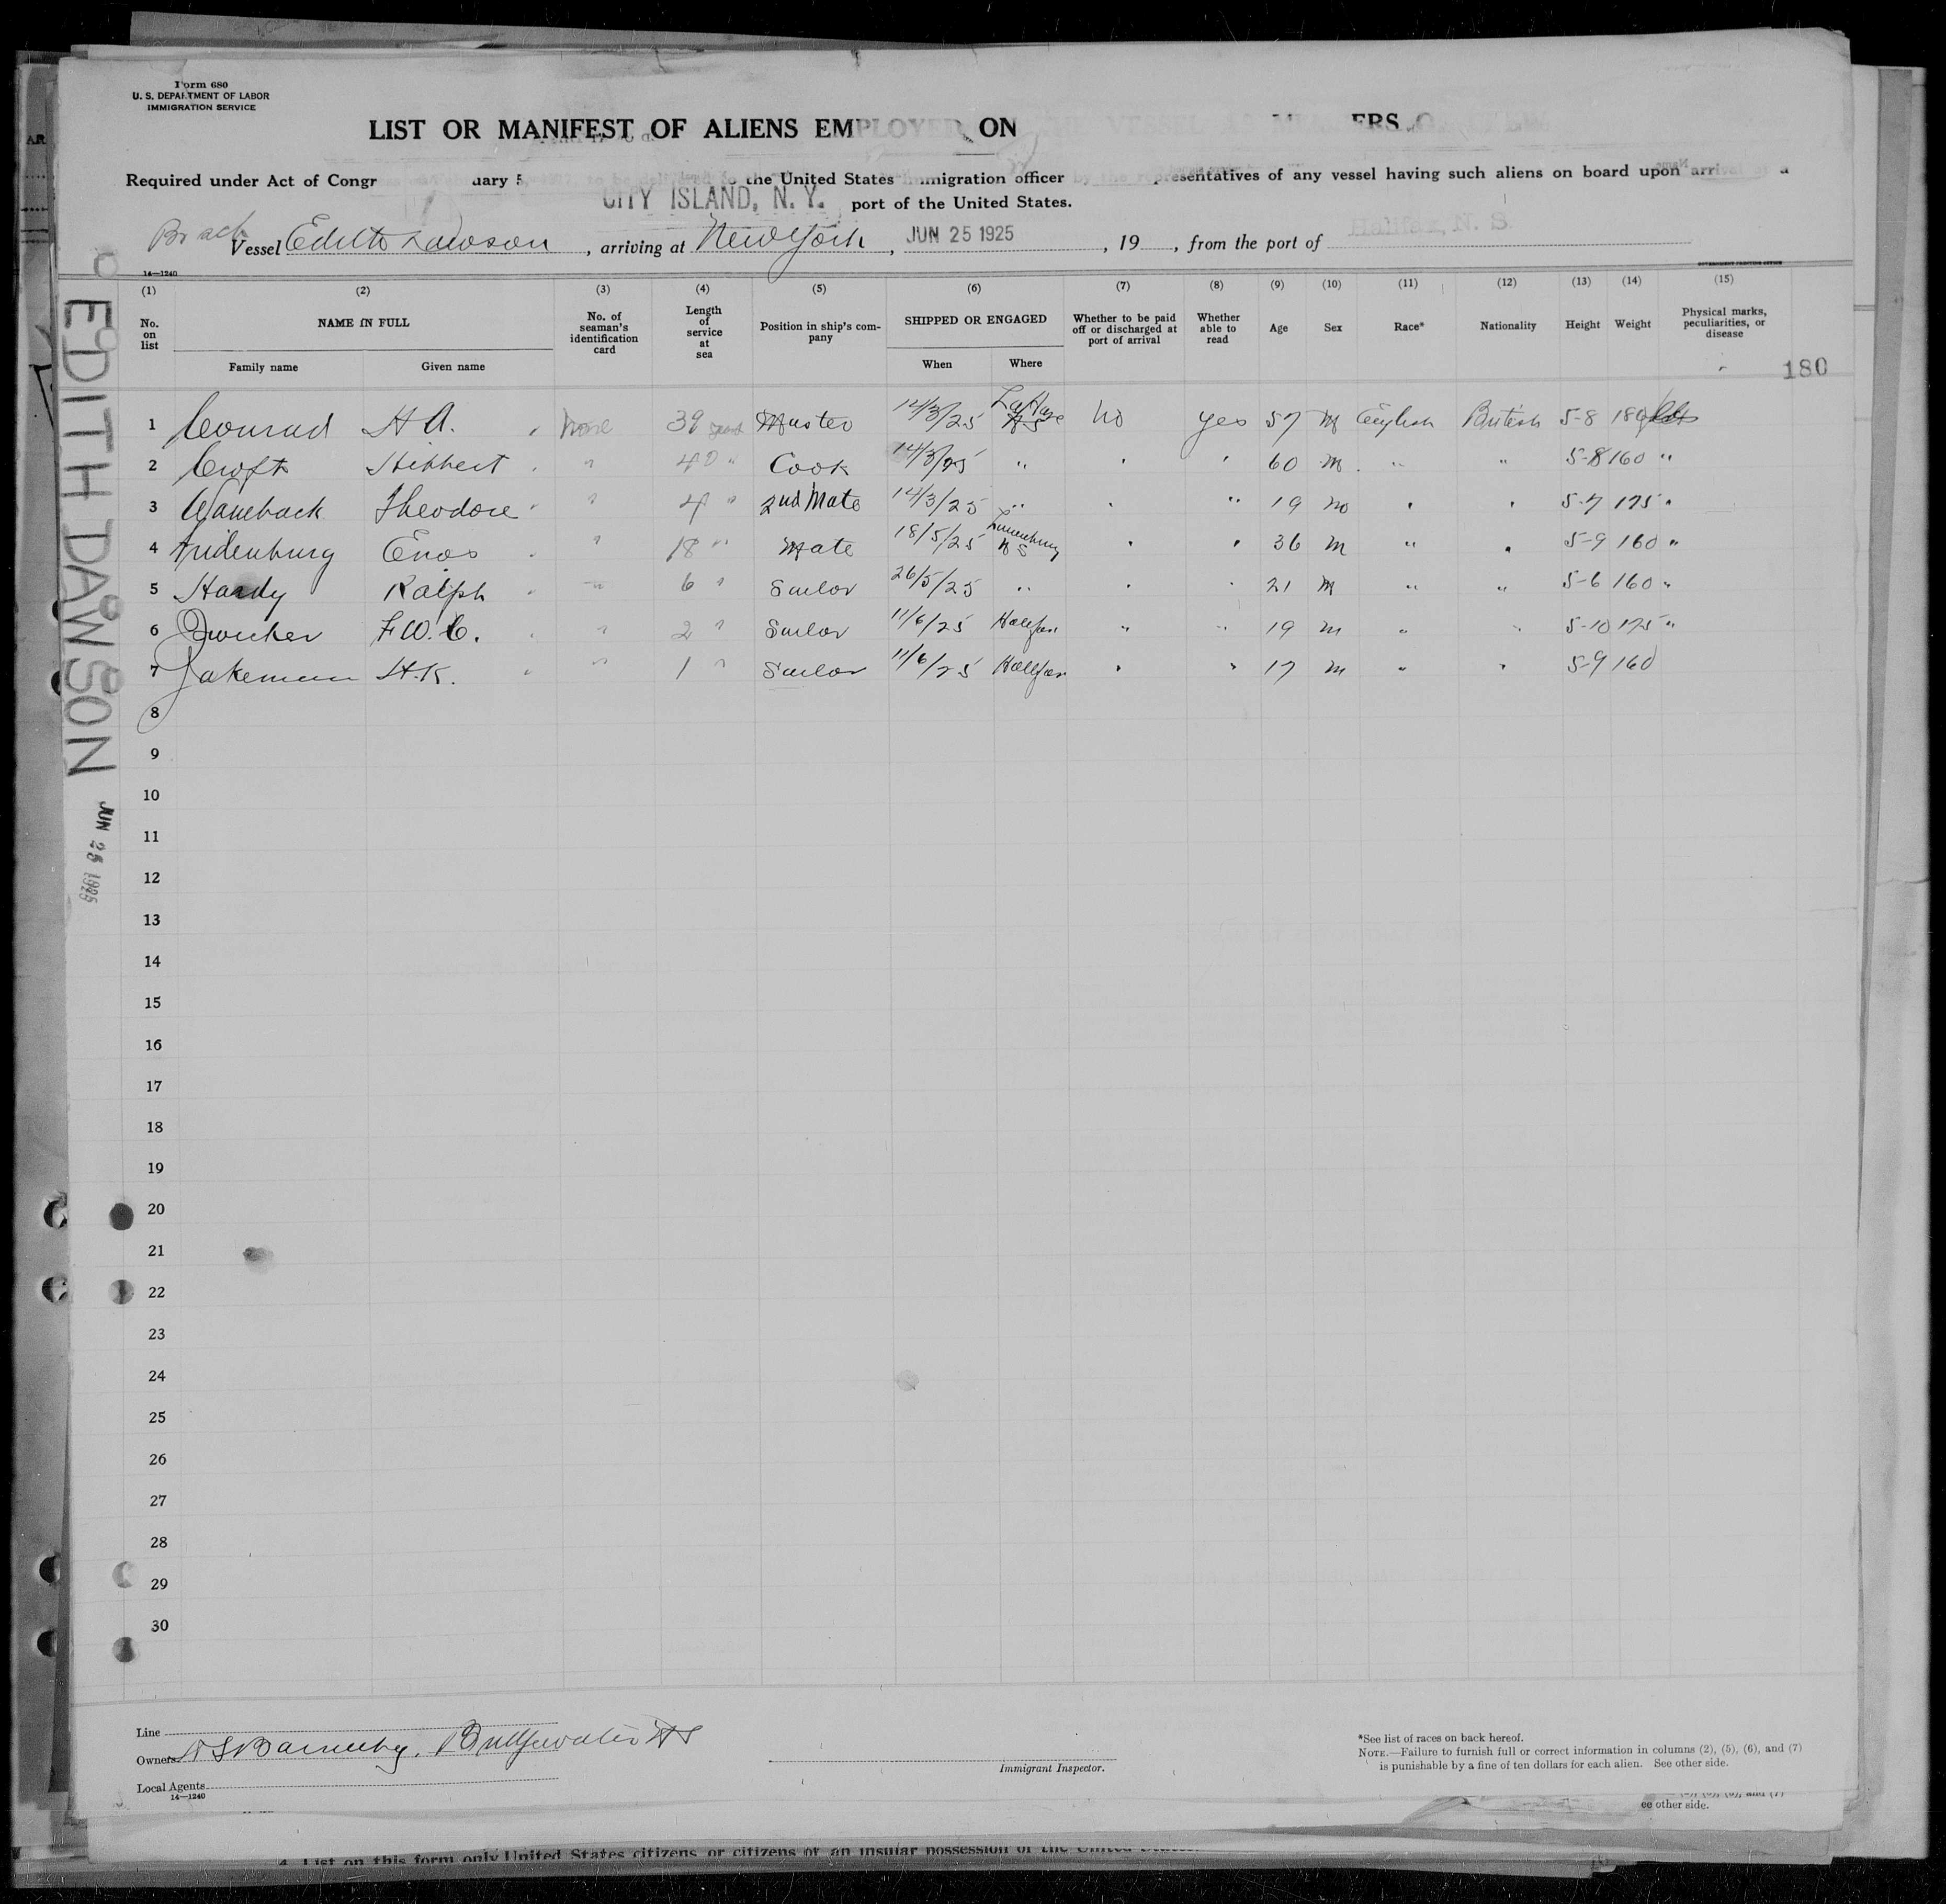 Form 680
U. S. DEPARTMENT OF LABOR
IMMIGRATION SERVICE
LIST OR MANIFEST OF ALIENS EMPLOYED ON
ERS
Required under Act of Congr uary 5 the United States immigration officer by the representatives of any vessel having such aliens on board upon arrival
CITY ISLAND, N. Y. port of the United States.
Vessel Edith Dawson, arriving at New York, JUN 25 1925, 19, from the port of Halifax, N. S.
14—1240
(1) (2) (3) (4) (5) (6) (7) (8) (9) (10) (11) (12) (13) (14) (15)
No. on list NAME IN FULL No. of seaman's identification card Length of service at sea Position in ship's company SHIPPED OR ENGAGED Whether to be paid off or discharged at port of arrival Whether able to read Age Sex Race* Nationality Height Weight Physical marks, peculiarities, or disease
Family name Given name When Where
180
1 Conrad H A. none 39 years Master 14/3/25 LaHave N S No yes 57 M English British 5-8 180 lbs
2 Croft Hibbert " 40 " Cook 14/3/25 " " " 60 M " " 5-8 160 "
3 Wambach Theodore " 4 " 2nd Mate 14/3/25 " " " 19 M " " 5-7 175 "
4 Enos " 18 " Mate 18/5/25 Lunenburg N S " " 36 M " " 5-9 160 "
5 Hardy Ralph " 6 " Sailor 26/5/25 " " " 21 M " " 5-6 160 "
6 Zwicker F W. C. " 2 " Sailor 11/6/25 Halifax " " 19 M " " 5-10 175 "
7 Jakeman H. K. " 1 " Sailor 11/6/25 Halifax " " 17 M " " 5-9 160
8
9
10
11
12
13
14
15
16
17
18
19
20
21
22
23
24
25
26
27
28
29
30
EDITH DAWSON
JUN 25 1925
Line
Owners Barnaby, Bridgewater N S
Local Agents
14—1240
Immigrant Inspector.
*See list of races on back hereof.
NOTE.—Failure to furnish full or correct information in columns (2), (5), (6), and (7)
is punishable by a fine of ten dollars for each alien. See other side.
ee other side.
4. List on this form only United States citizens or citizens of an insular possession of the United States.